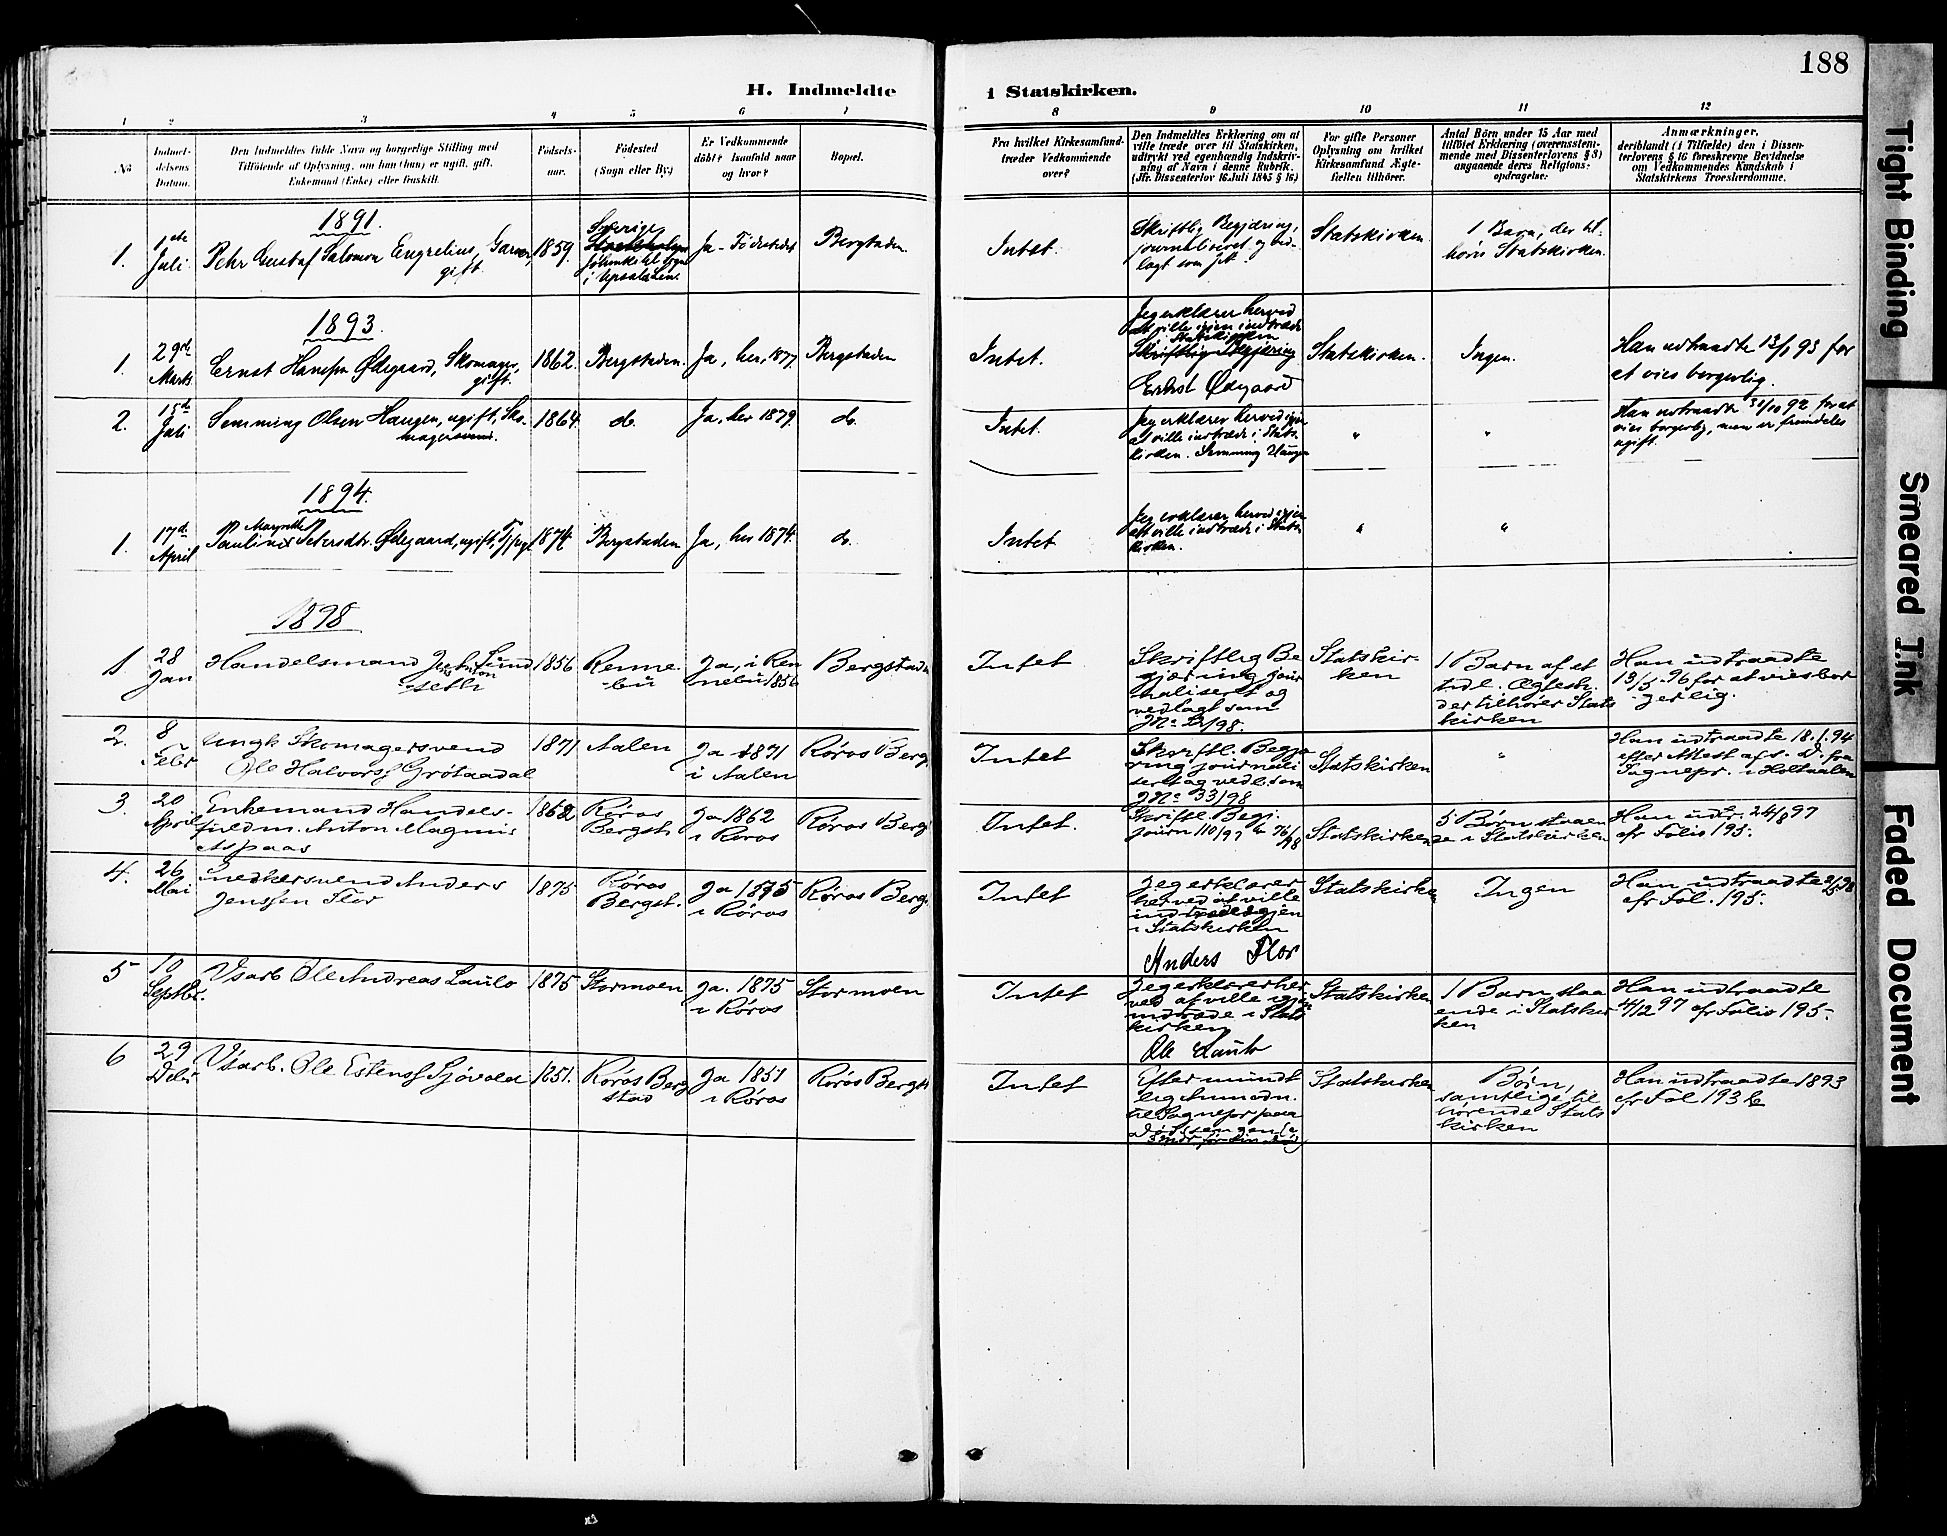 188
H. Indmeldte i Statskirken.
1 2 3 4 5 6 7 8 9 10 11 12
No
Indmeldelsens Datum.
Den Indmeldtes fulde Navn og borgerlige Stilling med
Tilföiende af Oplysning, om han (hun) er ugift, gift,
Enkemand (Enke) eller fraskilt.
Födselsaar.
Födested
(Sogn eller By.)
Er Vedkommende
döbt? Isaafald naar
og hvor?
Bopæl.
Fra hvilket Kirkesamfund-
træder Vedkommende
over?
Den Indmeldtes Erklæring om at
ville træde over til Statskirken,
udtrykt ved egenhændig Indskriv-
ning af Navn i denne Rubrik.
(Jfr. Dissenterlov 16 Juli 1845 § 16.)
For gifte Personer
Oplysning om hvilket
Kirkesamfund Ægte-
fællen tilhörer.
Antal Börn under 15 Aar med
tilföiet Erklæring (overensstem-
mende med Dissenterlovens § 8)
angaaende deres Religions-
opdragelse:
Anmærkninger,
deriblandt (i Tilfælde) den i Dissen-
terlovens § 16 foreskrevne Bevidnelse
om Vedkommendes Kundskab i
Statskirkens Troeslærdomme.
1891.
1. 1ste Juli Pehr Gustaf Salomon Engrelius, Garver, gift. 1859. Sverige i Upsala Len. Ja - Födestedet Bergstaden
Intet. Skriftlig Begjæring, journaliseret og vedlagt som Statskirken 1 Barn, der tilhører Statskirken.
1893.
1. 29de Marts Ernst Hansen Ødegaard, Skomager, gift. 1862. Bergstaden. Ja, her, 1877. Bergstaden
Intet. Jeg erklærer herved at ville igjen indtræde i Statskirken
Ernst Ødegaard
Statskirken. Ingen. Han udtraadte 13/1 93 for at vies borgerlig.
2. 15de Juli Semming Olsen Haugen, ugift, Skomagersvend. 1864. do. Ja, her 1879. do.
Intet. Jeg erklærer herved igjen at ville indtræde i Statskirken. Semming Haugen " " Han udtraadte 31/10 92 for at vies borgerlig, men er fremdeles ugift.
1894.
1. 17de April Pauline Margrethe Petersdtr. Ødegaard, ugift, Tjpige 1874 Bergstaden Ja, her 1874. do.
Intet Jeg erklærer herved igjen at ville indtræde i Statskirken. " "
1898
1. 28 Jan Handelsmand Lundseth 1856 Rennebu Ja, i Rennebu 1856 Bergstaden
Intet Skriftlig Begjæring journaliseret og vedlagt som Statskirken 1 Barn af et tidl. Ægtesk. der tilhører Statskirken Han udtraadte 13/5 96 for at vies borgerlig.
2. 8 Febr Ungk Skomagersvend Ole Halvors Grötaadal 1871 Aalen Ja 1871 i Aalen Röros Berg
Intet Skriftl. Begjæring journaliseret og vedl. som JNo 33/98 Statskirken " Han udtraadte 18.1.94 efter Attest fra Sognepr. i Holtaalen
3. 20 April Enkemand Handelsfuldm. Anton Magnus Aspaas 1862 Röros Bergst. Ja 1862 i Röros Röros Berg
Intet. Skriftl. Begj. Journ 110/97 & 76/98 Statskirken 5 Børn staaende i Statskirken Han udtr. 24/8 97 cfr Folio 195.
4. 26 Mai Snedkersvend Anders Jenssen Flor 1875 Röros Bergst. Ja 1875 i Röros Röros Berg.
Intet Jeg erklærer herved at ville indtræde igjen i Statskirken
Anders Flor
Statskirken Ingen Han udtraadte cfr Fol. 195.
5 10 Septbr. Vsarb Ole Andreas Saulo 1875 Stormoen Ja. 1875 i Röros Stormoen
Intet Jeg erklærer herved at ville igjen indtræde i Statskirken
Ole Saulo
Statskirken 1 Barn staaende i Statskirken Han udtraadte 4/12 97 cfr Folio 195.
6 29 Debr Vsarb. Ole Estens Sjövold 1851. Röros Bergstad Ja 1851 i Röros Röros Bergst
Intet Efter mundtlig Anmodn. til Sognepr paa Dødssengen Statskirken Børn, samtlige tilhørende Statskirken Han udtraadte 1893 cfr Fol 193 b
Tight Binding
Smeared Ink
Faded Document